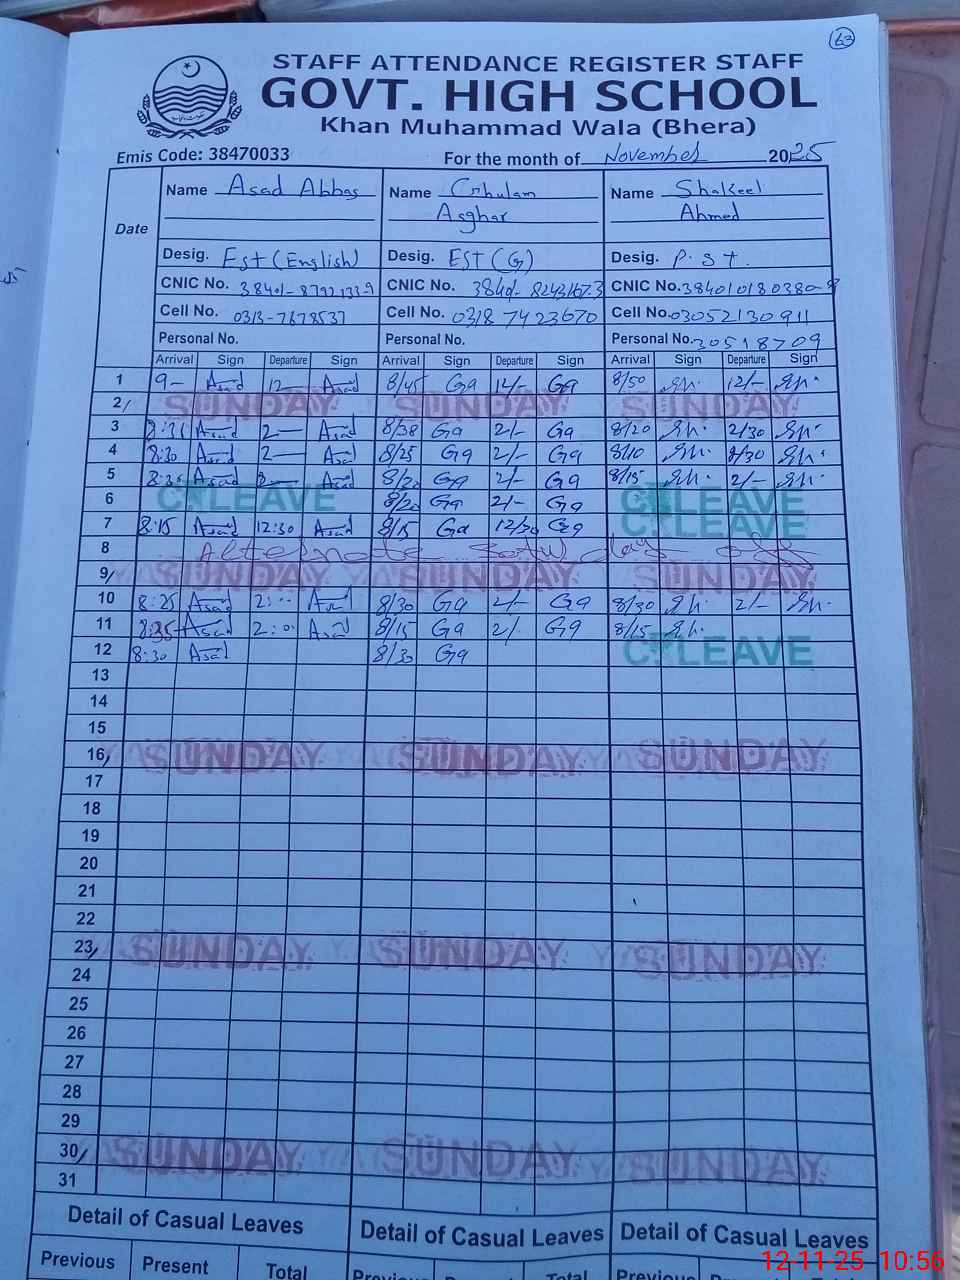 63
STAFF ATTENDANCE REGISTER STAFF
GOVT. HIGH SCHOOL
Khan Muhammad Wala (Bhera)
Emis Code: 38470033 For the month of November 2025
Date
Name Asad Abbas Name Ghulam Asghar Name Shakeel Ahmed
Desig. Est (English) Desig. EST (G) Desig. P.S.T.
CNIC No. CNIC No. CNIC No.
Cell No. 0313-7678537 Cell No. 0318 7423670 Cell No. 03052130911
Personal No. Personal No. Personal No. 30518709
Arrival Sign Departure Sign Arrival Sign Departure Sign Arrival Sign Departure Sign
1 9- Asad 12- Asad 8/45 Ga 12/- Ga 8/50 12/-
2 SUNDAY SUNDAY SUNDAY
3 Asad 2- Asad 8/38 Ga 2/- Ga 8/20 2/30
4 8:30 Asad 2- Asad 8/25 Ga 2/- Ga 8/10
5 Asad Asad 8/20 Ga 2/- Ga 8/15 2/-
6 C LEAVE 8/20 Ga 2/- Ga C LEAVE
7 8:15 Asad 12:30 Asad 8/15 Ga 12/30 Ga C LEAVE
8 Alternate Saturday off
9 SUNDAY SUNDAY SUNDAY
10 8:25 Asad 2:-- Asad 8/30 Ga 2/- Ga 8/30 2/-
11 8:35 Asad 2:0 Asad 8/15 Ga 2/ Ga 8/15
12 8:30 Asad 8/30 Ga C LEAVE
13
14
15
16 SUNDAY SUNDAY SUNDAY
17
18
19
20
21
22
23 SUNDAY SUNDAY SUNDAY
24
25
26
27
28
29
30 SUNDAY SUNDAY SUNDAY
31
Detail of Casual Leaves Detail of Casual Leaves Detail of Casual Leaves
Previous Present Total Previous Present Total Previous Present
12-11-25 10:56